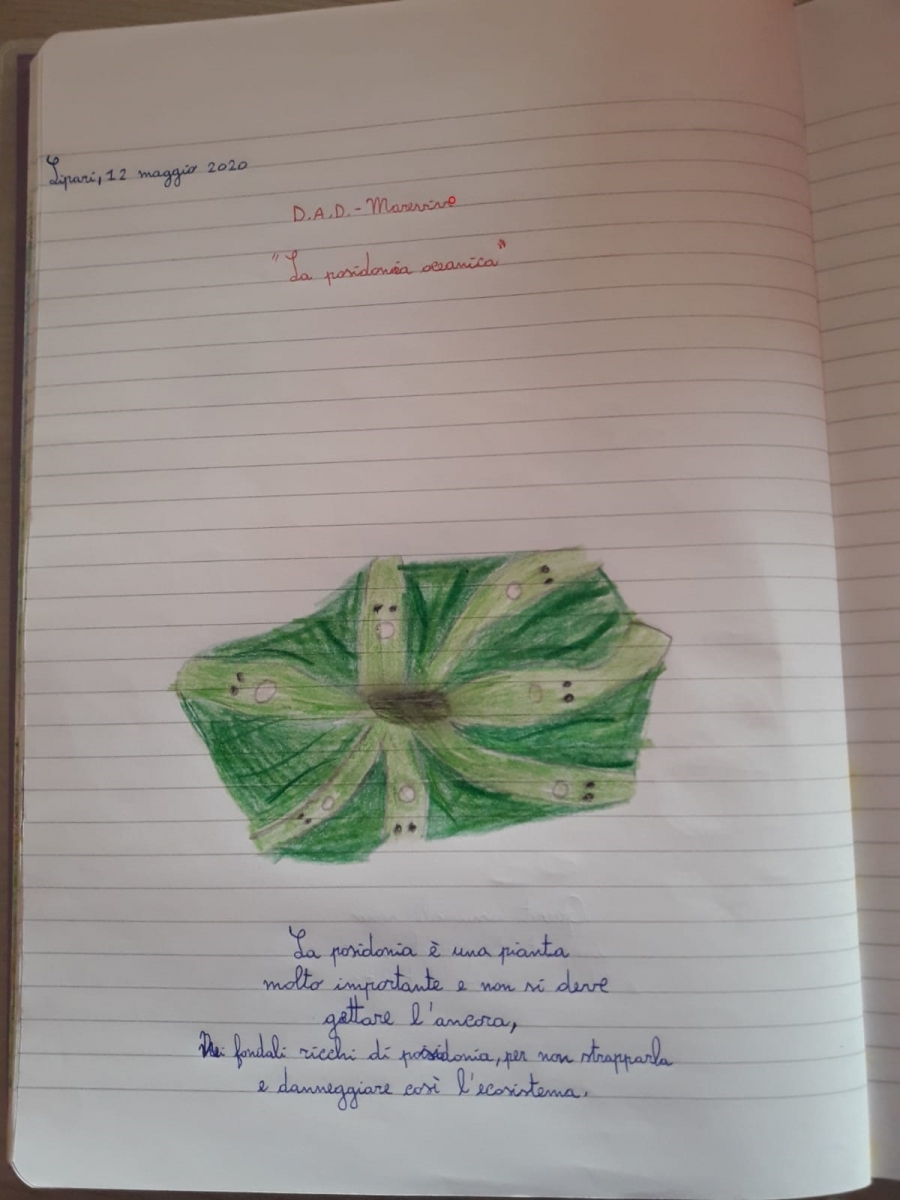 Lipari, 12 maggio 2020
D.A.D. - Marevivo
"La posidonia oceanica"
La posidonia è una pianta
molto importante e non si deve
gettare l'ancora,
Nei fondali ricchi di posidonia, per non strapparla
e danneggiare così l'ecosistema.